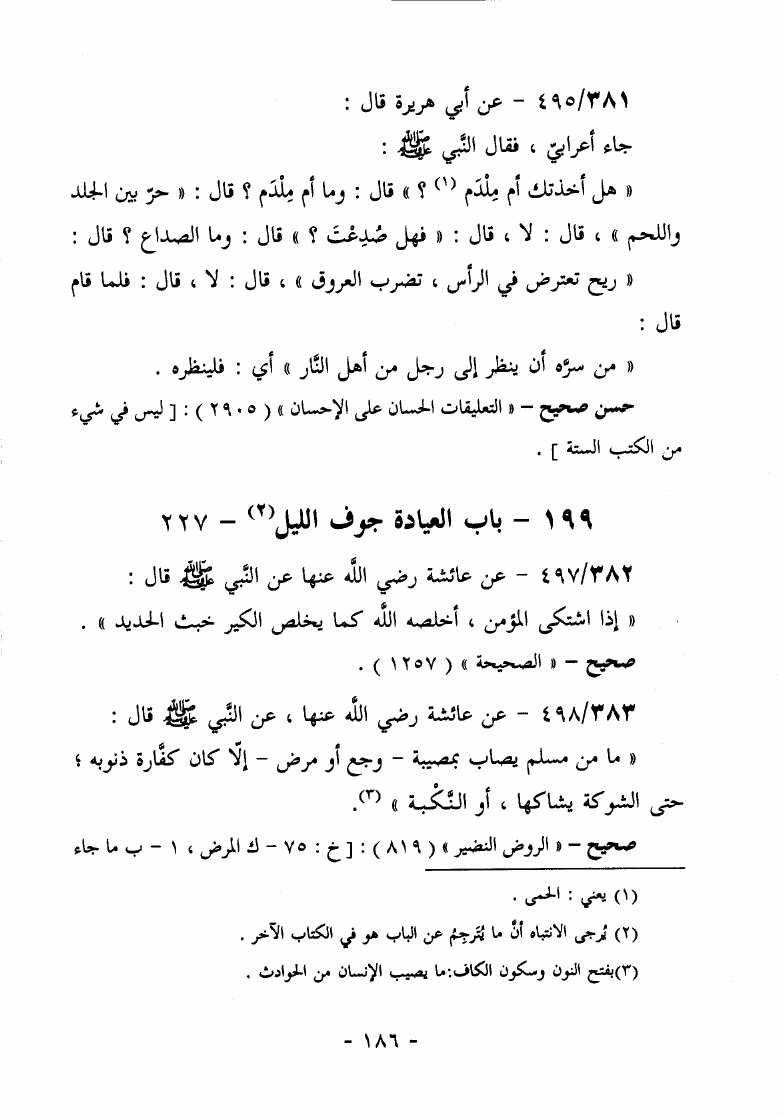 ٤٩٥/٣٨١ - عن أبي هريرة قال :
جاء أعرابيّ ، فقال النَّبي ﷺ :
« هل أخذتك أم مِلْدَم (١) ؟ » قال : وما أم مِلْدَم ؟ قال : « حرّ بين الجلد
واللحم » ، قال : لا ، قال : « فهل صُدِعْتَ ؟ » قال : وما الصداع ؟ قال :
« ريح تعترض في الرأس ، تضرب العروق » ، قال : لا ، قال : فلما قام
قال :
« من سرَّه أن ينظر إلى رجل من أهل النَّار » أي : فلينظره .
حسن صحيح – « التعليقات الحسان على الإحسان » ( ٢٩٠٥ ) : [ ليس في شيء
من الكتب الستة ] .
١٩٩ - باب العيادة جوف الليل(٢) – ٢٢٧
٤٩٧/٣٨٢ - عن عائشة رضي اللَّه عنها عن النَّبي ﷺ قال :
« إذا اشتكى المؤمن ، أخلصه اللَّه كما يخلص الكير خبث الحديد » .
صحيح – « الصحيحة » ( ١٢٥٧ ) .
٤٩٨/٣٨٣ - عن عائشة رضي اللَّه عنها ، عن النَّبي ﷺ قال :
« ما من مسلم يصاب بمصيبة - وجع أو مرض - إلّا كان كفَّارة ذنوبه ؛
حتى الشوكة يشاكها ، أو النَّكْبة » (٣).
صحيح – « الروض النضير » ( ٨١٩ ) : [ خ : ٧٥ - ك المرض ، ١ - ب ما جاء
(١) يعني : الحمى .
(٢) يُرجى الانتباه أنَّ ما يُتَرجِمُ عن الباب هو في الكتاب الآخر .
(٣)بفتح النون وسكون الكاف:ما يصيب الإنسان من الحوادث .
- ١٨٦ -